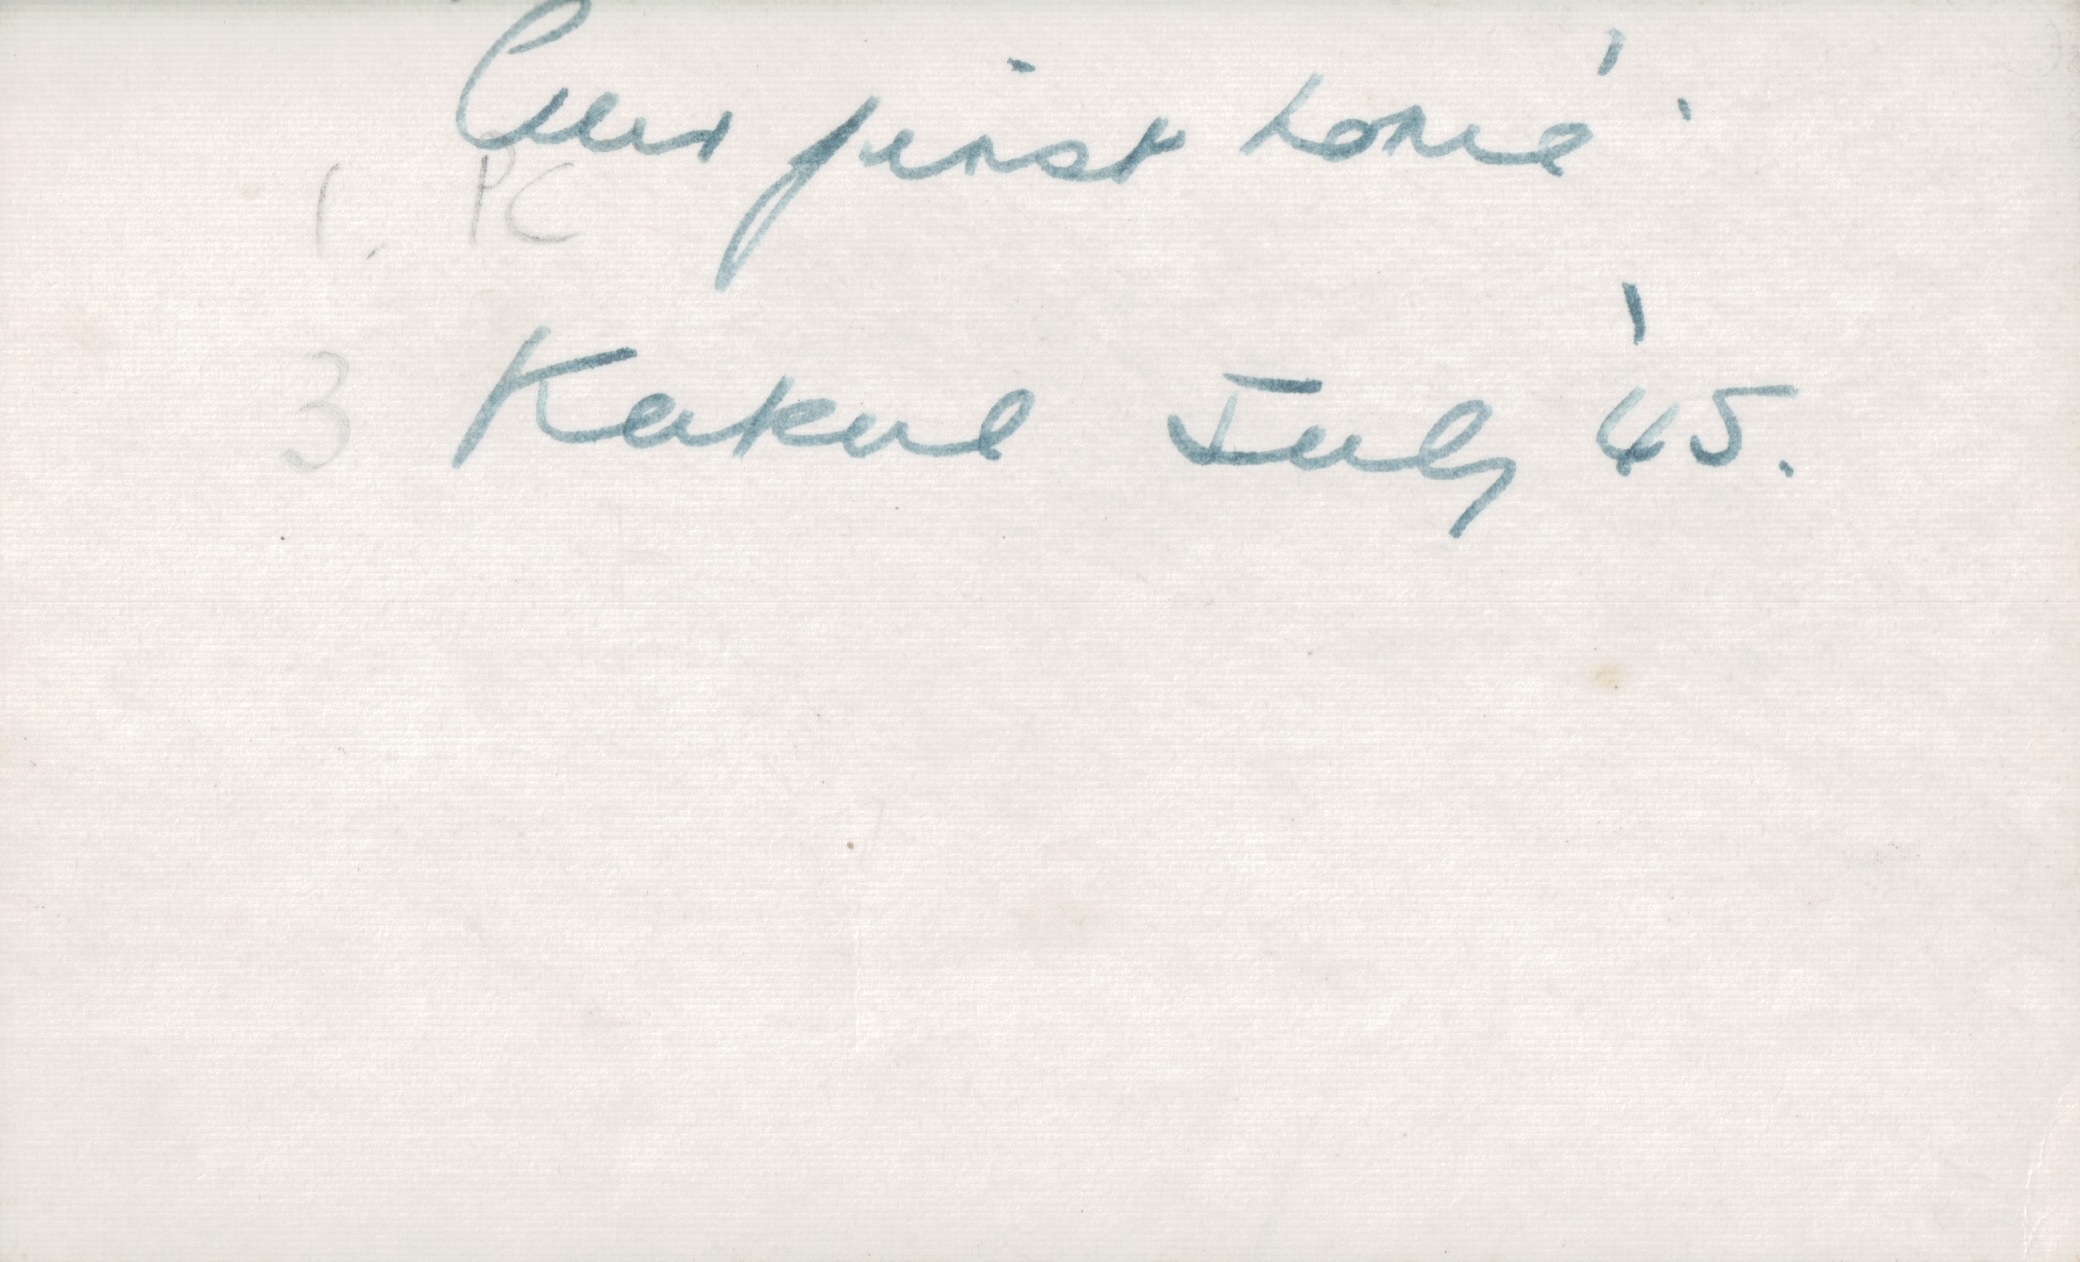 Our first home'.
1. PC
3 Kakul July '45.